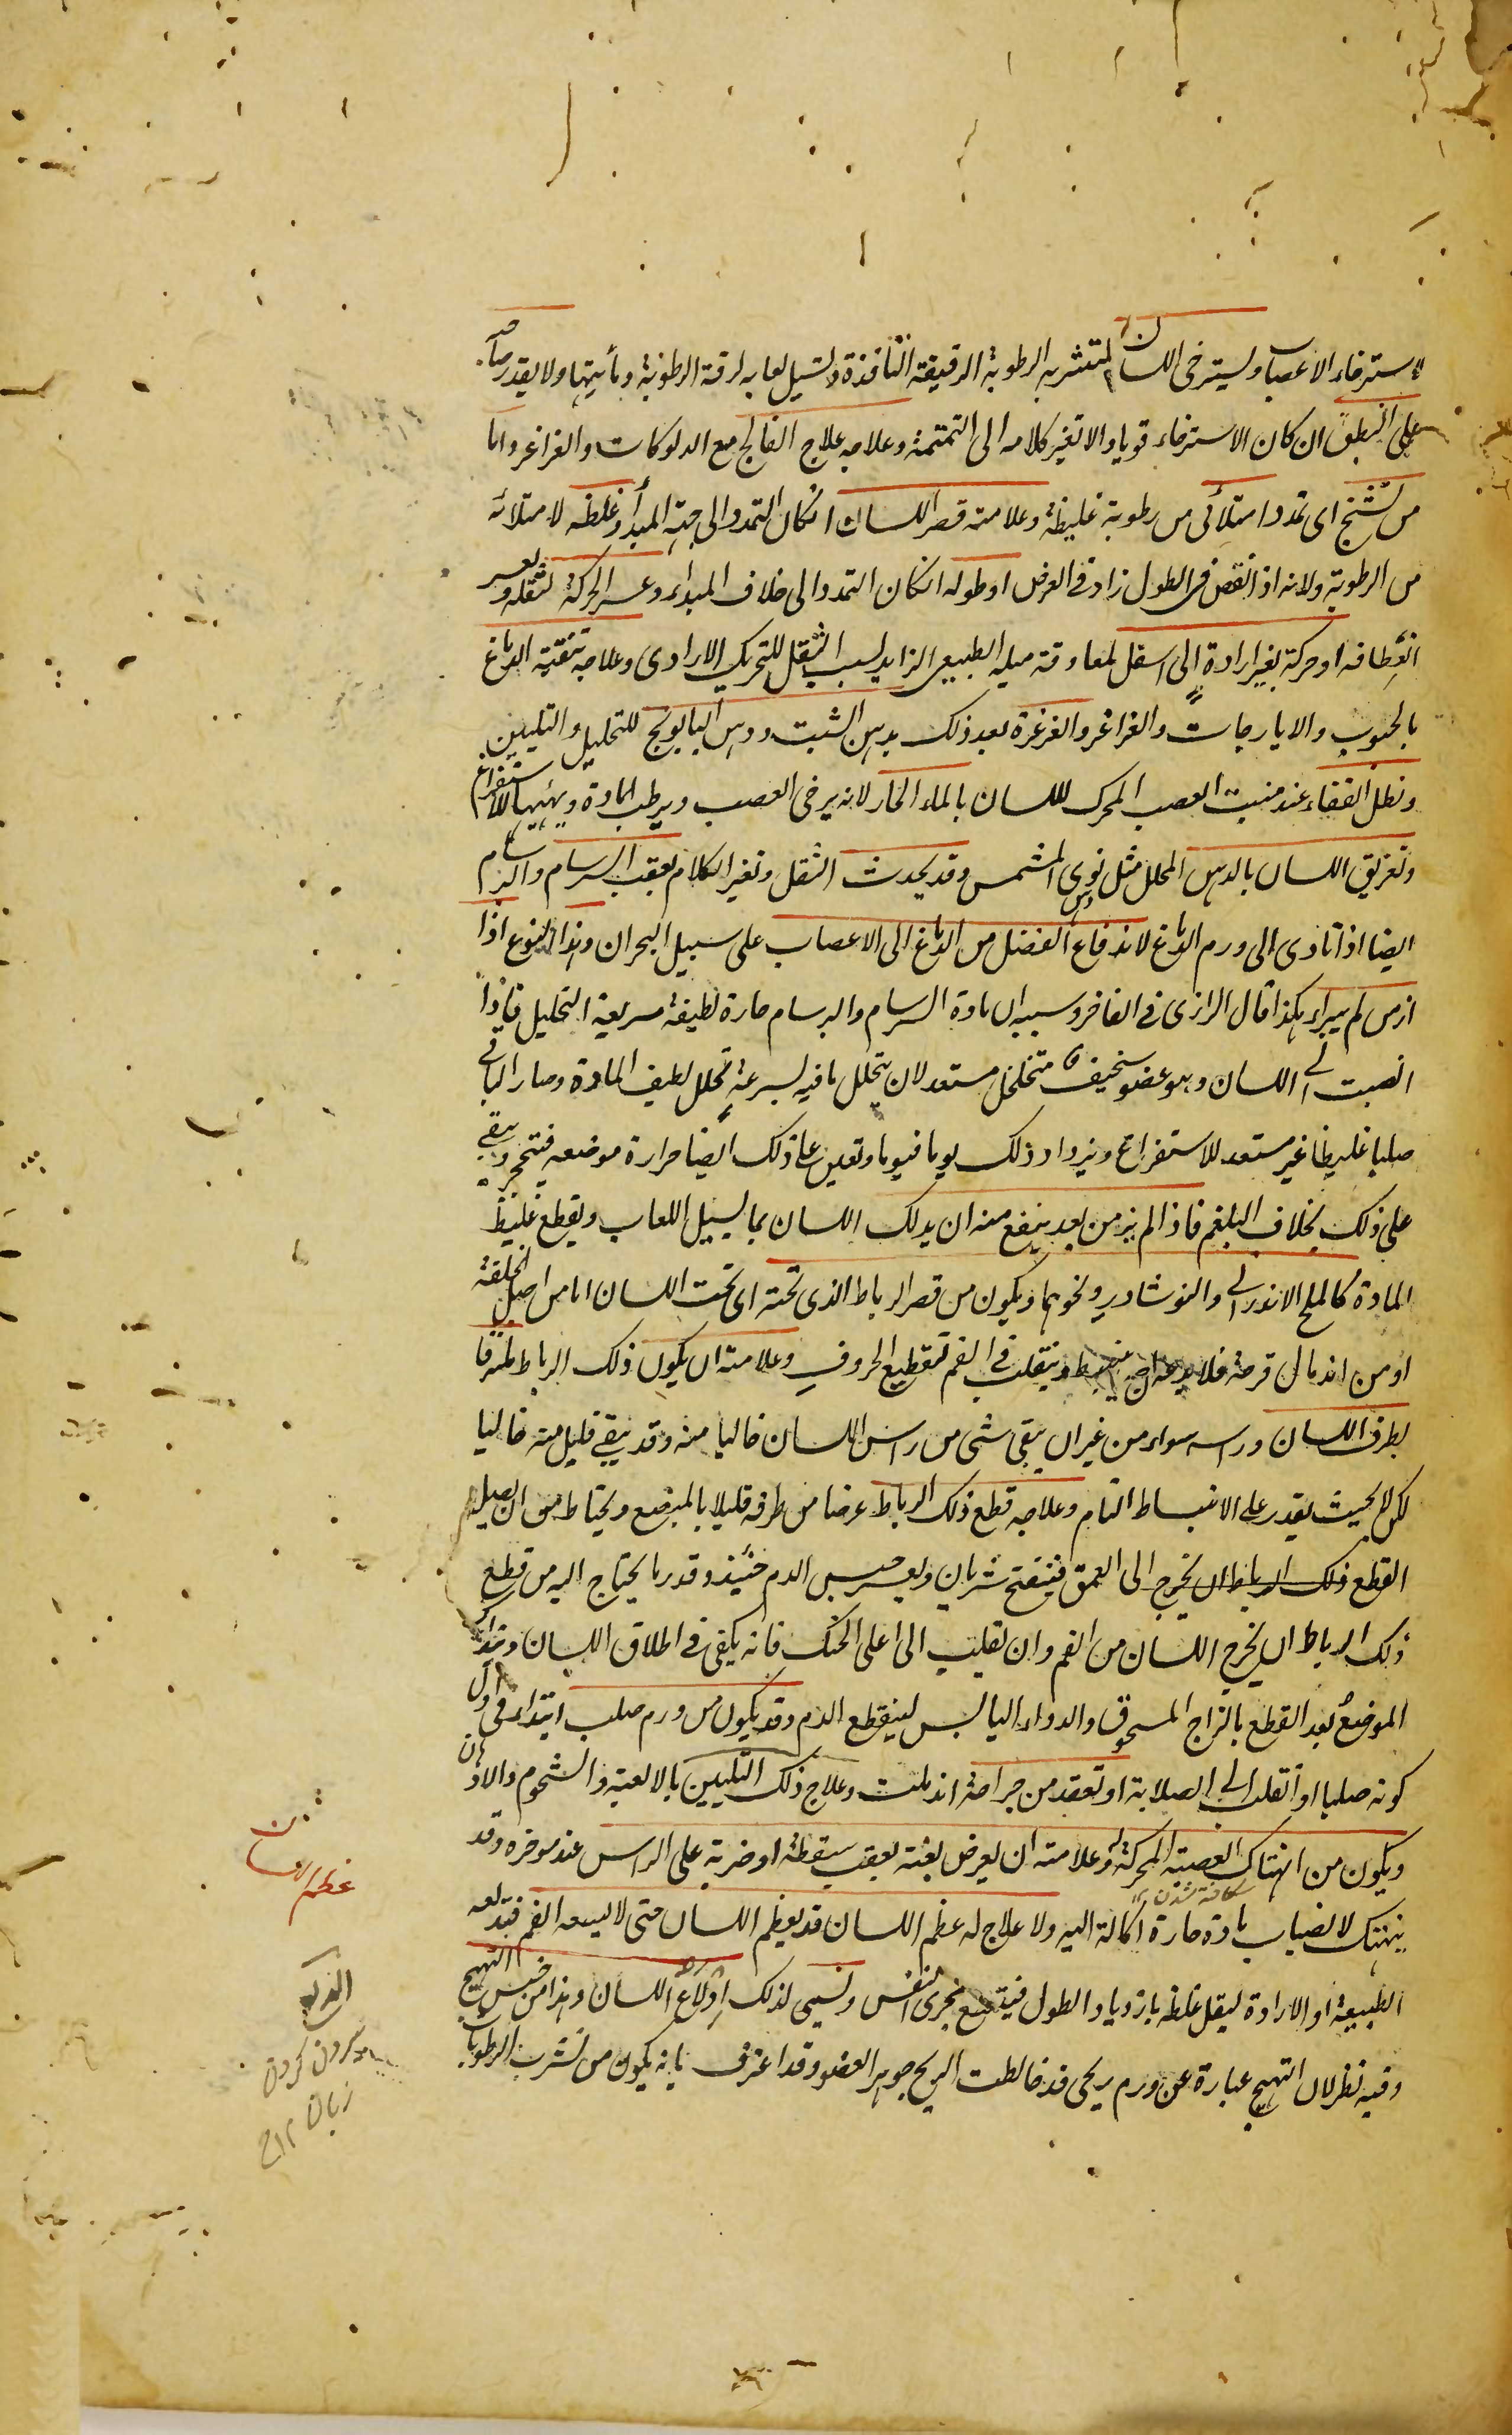 لاسترخاء الاعصاب ويسترخى اللسان لتشربه الرطوبة الرقيقة النافذة ويسيل لعابه لرقة الرطوبة ومأييتها ولا يقدر صاحبه
على النطق ان كان الاسترخاء قويا والا تغير كلامه الى التمتمة وعلاجه علاج الفالج مع الدلوكات والغراغر واما
من تشنج اى تمدد امتلائى من رطوبة غليظة وعلامته قصر اللسان انكان التمدد الى جهة المبدأ وغلظه لامتلائه
من الرطوبة ولانه اذا نقص فى الطول زاد فى العرض او طوله انكان التمدد الى خلاف المبداء وعسر الحركة لثقله وتعسر
انعطافه او حركة بغير ارادة الى اسفل لمعاوقة ميله الطبيعى الزايد بسبب الثقل للتحريك الارادى وعلاجه تنقية الدماغ
بالحبوب والايارجات والغراغر والغرغرة بعد ذلك بدهن الشبت ودهن البابونج للتحليل والتليين
ونطل القفاء عند منبت العصب المحرك للسان بالماء الحار لانه يرخى العصب ويرطب المادة ويهيئها للاستفراغ
وتغريق اللسان بالدهن المحلل مثل دهن نوى المشمس وقد يحدث الثقل وتغير الكلام بعقب السرسام والبرسام
ايضا اذا تادى الى ورم الدماغ لاندفاع الفضل من الدماغ الى الاعصاب على سبيل البحران وهذا النوع اذا
ازمن لم يبراء هكذا قال الرازى فى الفاخر وسببه ان مادة السرسام والبرسام حارة لطيفة سريعة التحليل فاذا
انصبت الى اللسان وهو عضو سخيف متخلخل مستعد لان يتحلل ما فيه بسرعة تحلل لطيف المادة وصار الباقى
صلبا غليظا غير مستعد للاستفراغ ويزداد ذلك يوما فيوما وتعين على ذلك ايضا حرارة موضعه فيتحجر ويبقى
على ذلك بخلاف البلغم فاذا لم يزمن بعد ينفع منه ان يدلك اللسان بما يسيل اللعاب ويقطع غليظ
المادة كالملح الاندرانى والنوشادر ونحوهما ويكون من قصر الرباط الذى تحته اى تحت اللسان اما من اصل الخلقة
او من اندمال قرحة فلا يدعه ان ينبسط وينقلب فى الفم لتقطيع الحروف وعلامته ان يكون ذلك الرباط ملتزقا
بطرف اللسان وراسه سواء من غير ان يبقى شى من راس اللسان خاليا منه وقد يبقى قليل منه خاليا
لكن لا بحيث يقدر على الانبساط التام وعلاجه قطع ذلك الرباط عرضا من طرفه قليلا بالمبضع ويحتاط من ان يصل
القطع ذلك الرباط ان يخرج الى العمق فينفتح شريان ويعسر حبس الدم حنئيذ وقدر ما يحتاج اليه من قطع
ذلك الرباط ان يخرج اللسان من الفم وان نقلب الى اعلى الحنك فانه يكفى فى اطلاق اللسان
الموضع بعد القطع بالزاج المسحوق والدواء اليابس لينقطع الدم وقد يكون من ورم صلب ابتداء فى اول
كونه صلبا او انتقلت الى الصلابة او تعقد من جراحة اندملت وعلاج ذلك التليين بالالعبة والشحوم والادهان
ويكون من انهتاك العصبة المحركة له وعلامته ان يعرض بغتة بعقب سقطة او ضربة على الراس عند موخره وقد
شكافته شدن
ينهتك لانصباب مادة حارة اكالة اليه ولا علاج له عظم اللسان قد يعظم اللسان حتى لا يسعه الفم فتدلعه
الطبيعة او الارادة ليقل غلظه بازدياد الطول فيتسع مجرى النفس ويسمى لذلك ادلاع اللسان وهذا من جنس التهيج
وفيه نظر لان التهيج عبارة عن ورم ريحى قد خالطت الريح جوهر العضو وقد اعترف بانه يكون من تشرب الرطوبات
عظم اللسان
بيرون كردن
زبان ١٢